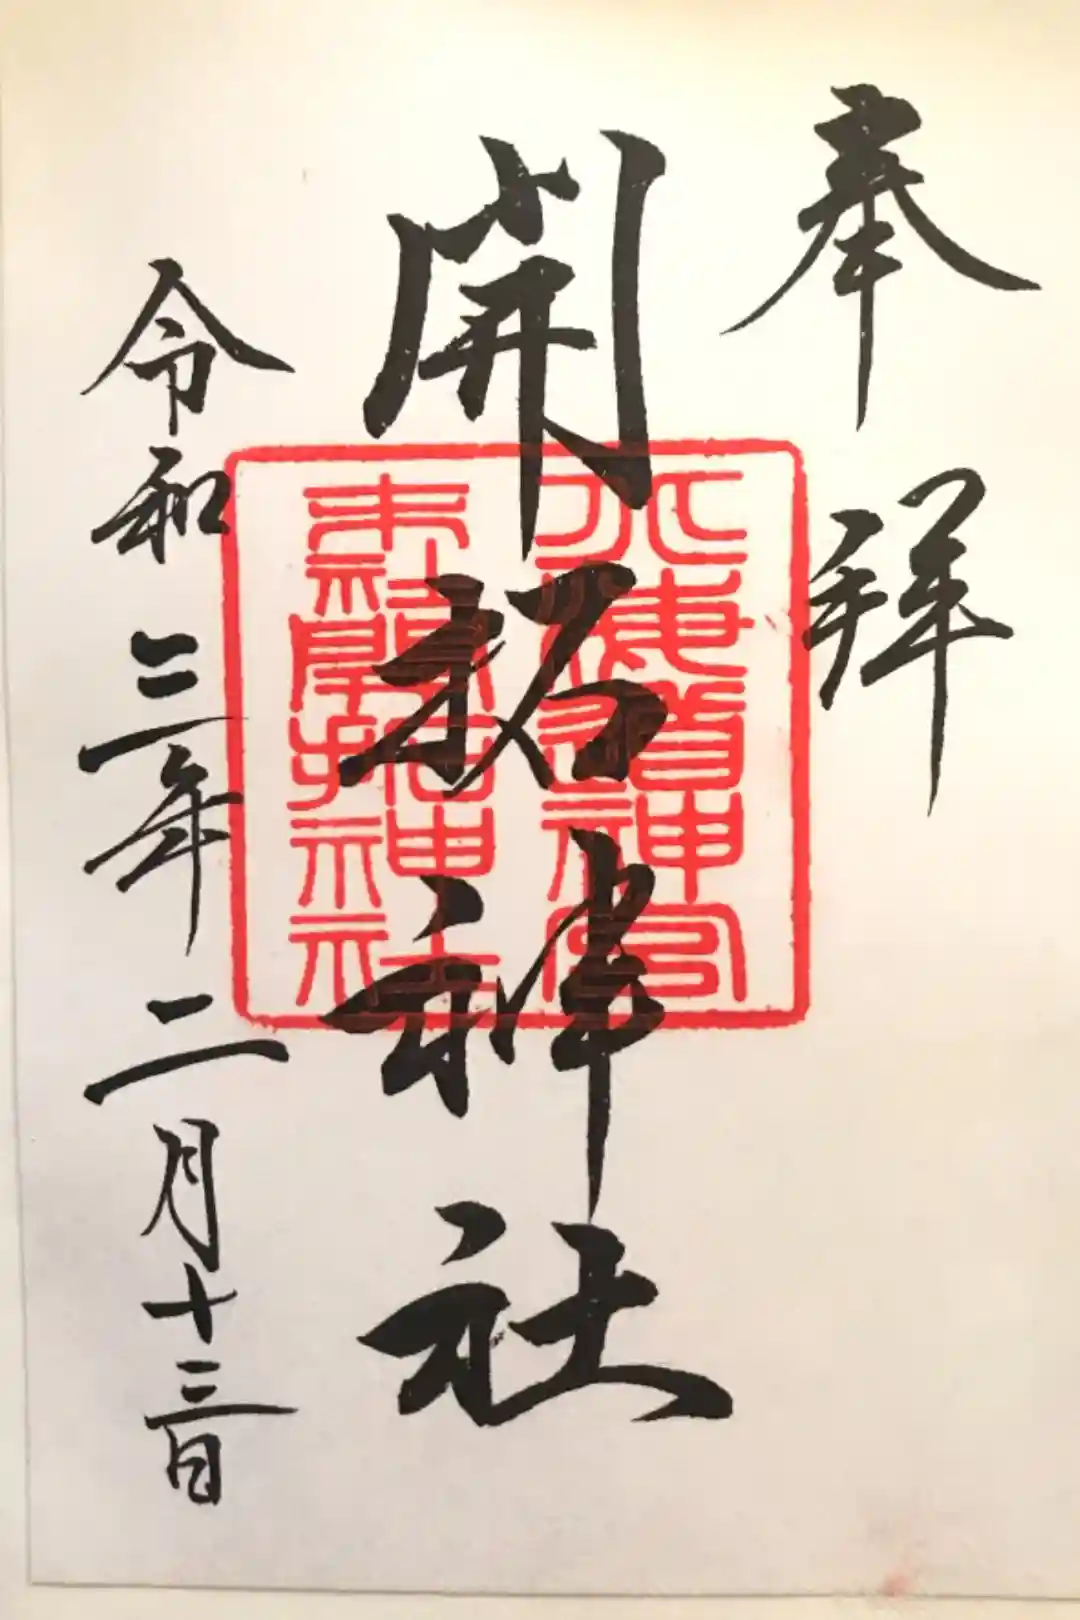 奉拝
開拓神社
北海道神宮
末社開拓神社
令和三年二月十三日